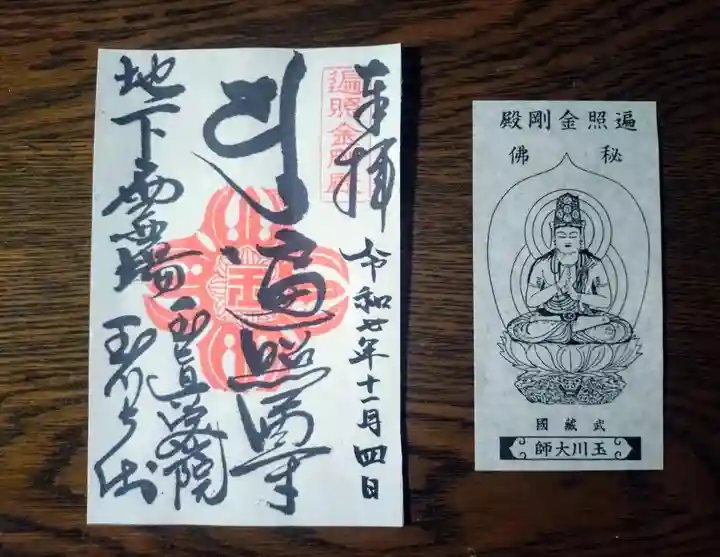 奉拝
令和七年十一月四日
遍照金剛殿
遍照金剛
地下霊場
玉眞密院
玉川大師
玉
遍照金剛殿
秘佛
武藏國
玉川大師